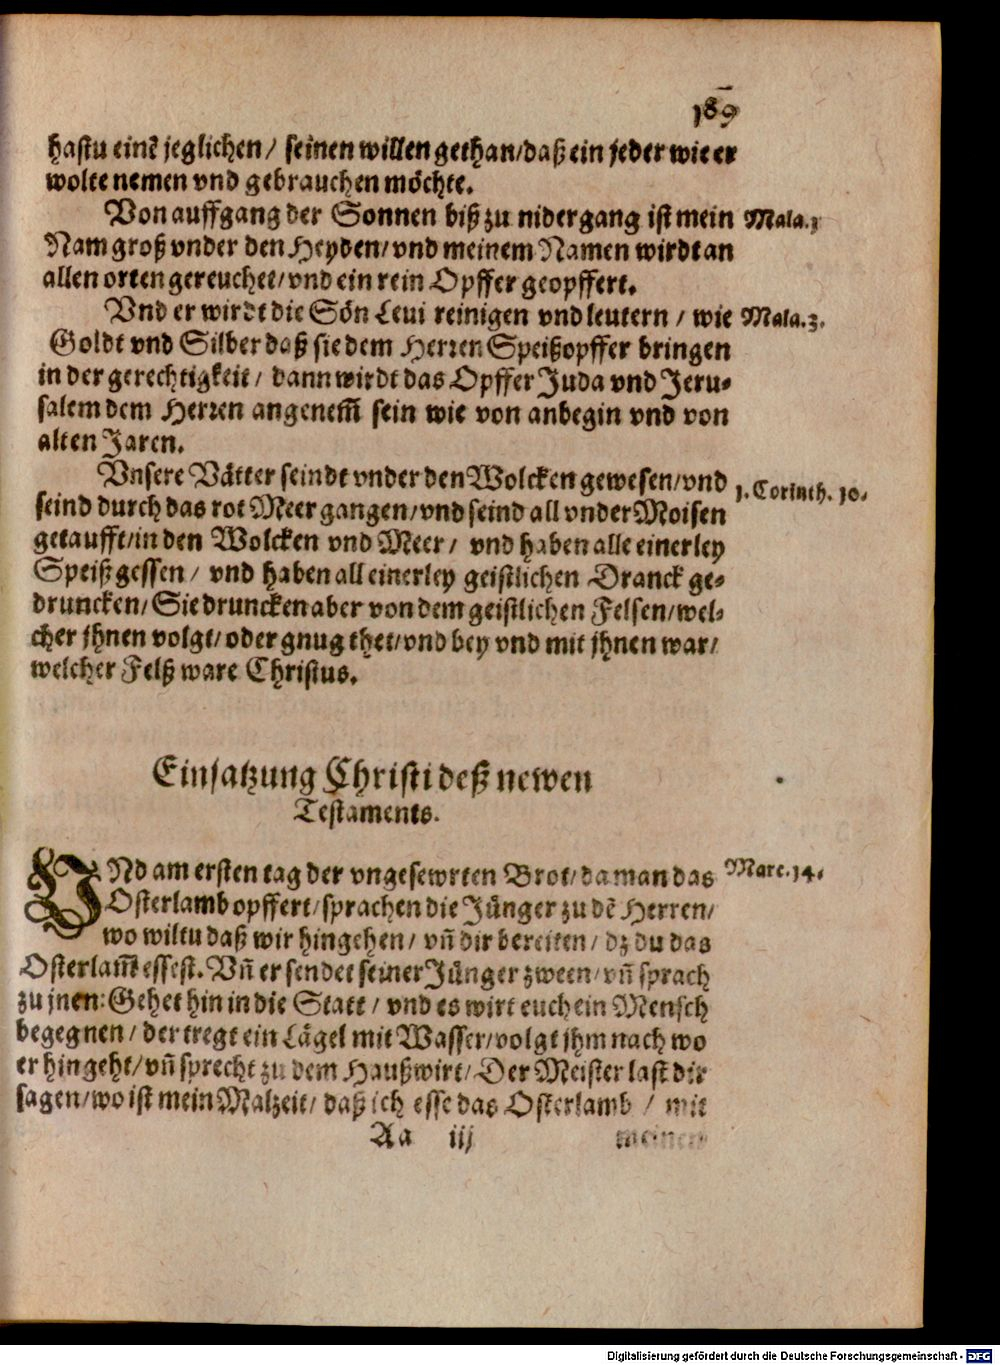 189
hastu einē jeglichen / seinen willen gethan/daß ein jeder wie er
wolte nemen vnd gebrauchen möchte.
Von auffgang der Sonnen biß zu nidergang ist mein Mala.j
Nam groß vnder den Heyden/vnd meinem Namen wirdt an
allen orten gereuchet/vnd ein rein Opffer geopffert.
Vnd er wirdt die Sön Leui reinigen vnd leutern / wie Mala.3.
Goldt vnd Silber daß sie dem Herren Speißopffer bringen
in der gerechtigkeit / dann wirdt das Opffer Juda vnd Jeru-
salem dem Herren angenem̄ sein wie von anbegin vnd von
alten Jaren.
Vnsere Vätter seindt vnder den Wolcken gewesen/vnd j. Corinth. jo.
seind durch das rot Meer gangen/vnd seind all vnder Moisen
getaufft/in den Wolcken vnd Meer / vnd haben alle einerley
Speiß gessen / vnd haben all einerley geistlichen Dranck ge-
druncken/Sie druncken aber von dem geistlichen Felsen/wel-
cher jhnen volgt/oder gnug thet/vnd bey vnd mit jhnen war/
welcher Felß ware Christus.
Einsatzung Christi deß newen
Testaments.
VNd am ersten tag der vngesewrten Brot/da man das Marc.14.
Osterlamb opffert/sprachen die Jünger zu dē Herren/
wo wiltu daß wir hingehen / vn̄ dir bereiten / dz du das
Osterlam̄ essest. Vn̄ er sendet seiner Jünger zween/vn̄ sprach
zu jnen: Gehet hin in die Statt / vnd es wirt euch ein Mensch
begegnen / der tregt ein Lägel mit Wasser/volgt jhm nach wo
er hingeht/vn̄ sprecht zu dem Haußwirt/Der Meister last dir
sagen/wo ist mein Malzeit/daß ich esse das Osterlamb / mit
Aa iij meinen
Digitalisierung gefördert durch die Deutsche Forschungsgemeinschaft - DFG